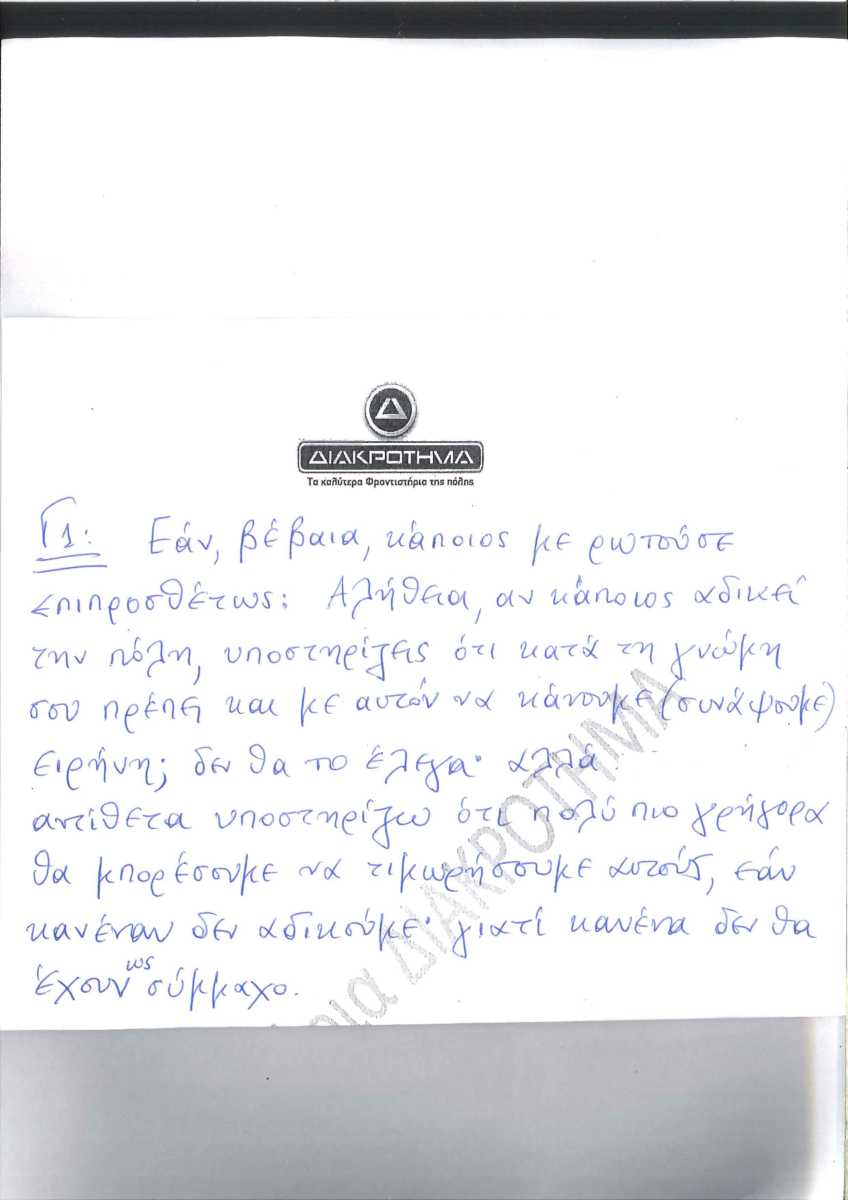 ΔΙΑΚΡΟΤΗΜΑ
Τα καλύτερα Φροντιστήρια της πόλης
Γ1: Εάν, βέβαια, κάποιος με ρωτούσε
επιπροσθέτως: Αλήθεια, αν κάποιος αδικεί
την πόλη, υποστηρίζεις ότι κατά τη γνώμη
σου πρέπει και με αυτόν να κάνουμε (συνάψουμε)
ειρήνη; δεν θα το έλεγα· αλλά
αντίθετα υποστηρίζω ότι πολύ πιο γρήγορα
θα μπορέσουμε να τιμωρήσουμε αυτούς, εάν
κανέναν δεν αδικούμε· γιατί κανένα δεν θα
έχουν ως σύμμαχο.
ρια ΔΙΑΚΡΟΤΗΜΑ